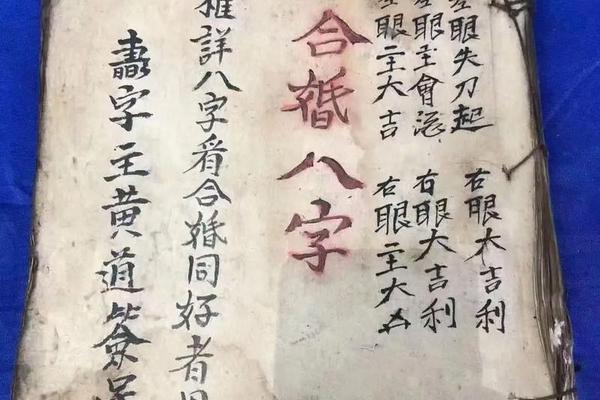 左眼失刀起 右眼大吉利
眼主會 右眼大吉利
眼二主大吉 右眼二主大凶
合婚八字
詳八字看合婚同好者
字主黄道